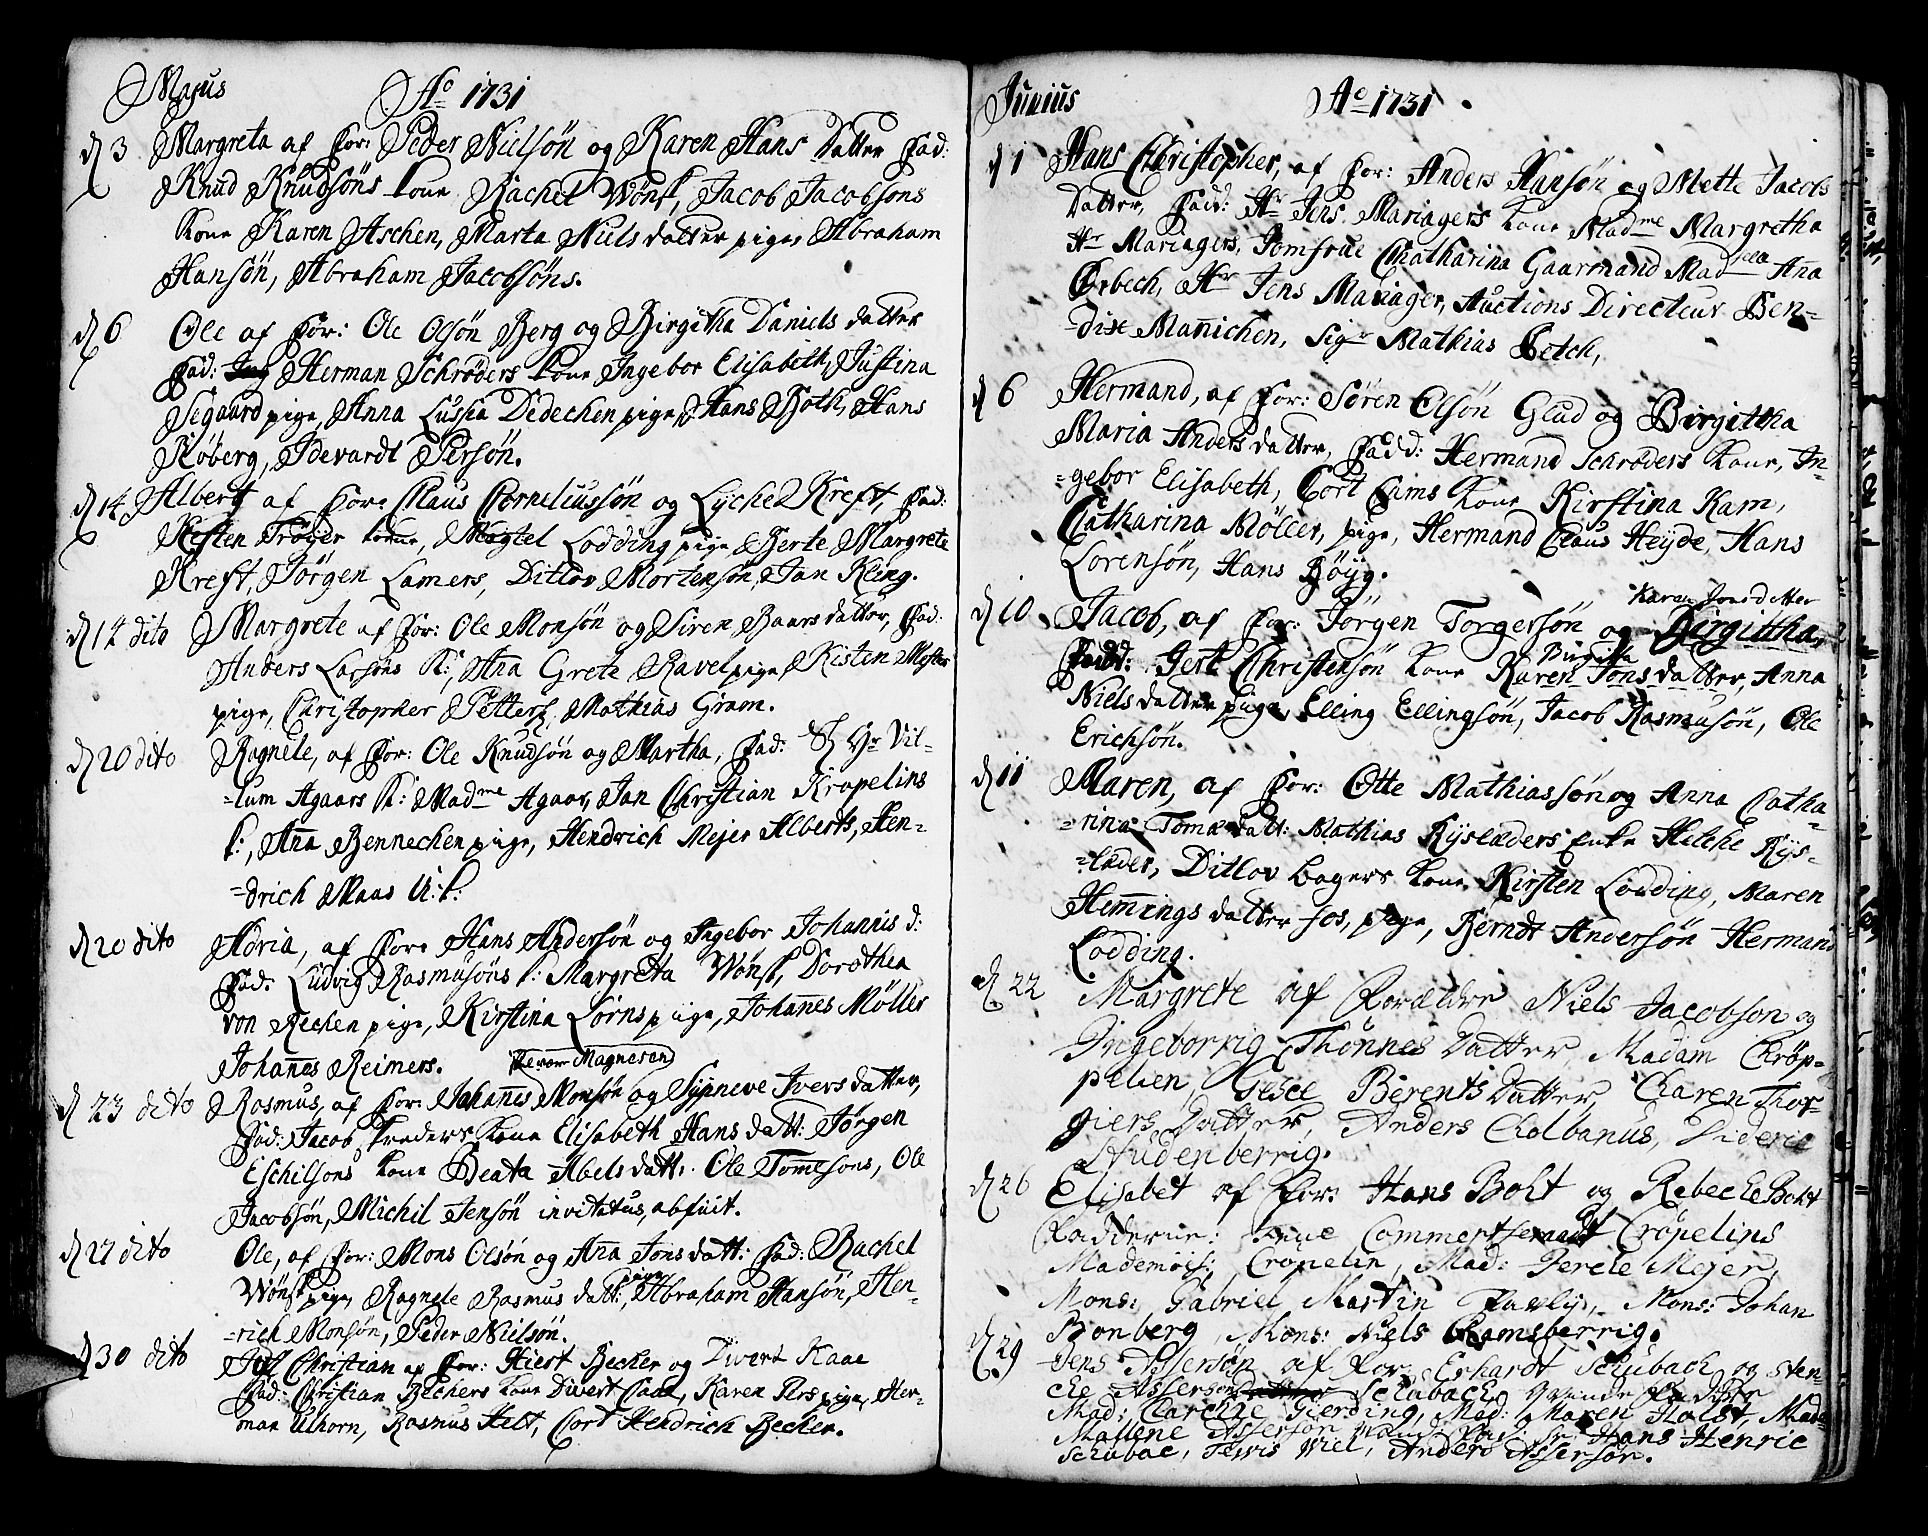 Majus Ao 1731
d 3 Margreta af For: Peder Nielsön og Karen Hans Datter Fad:
Knud Knudsöns kone Rachel Wönsk, Jacob Jacobsons
kone Karen Aschen, Marta Niels datter pige, Abraham
Hansön, Abraham Jacobsöns.
d 6 Ole af For: Ole Olsön Berg og Birgitha Daniels datter
Fad: Herman Schrøders kone Ingebor Elisabeth, Justina
Segaard pige, Anna Lussia Dedechen pige, Hans Both, Hans
Röberg, Idevardt Persön.
d 14 Albert af For: Claus Corneliussön og Lyche Kreft, Fad:
Kesten Tröyer kone, Magtel Lodding pige, Berte Margrete
Kreft, Jörgen Lamers, Ditlov Mortensön, Jan Kling.
d 14 dito Margrete af For: Ole Monsön og Siren Baars datter, Fad:
Anders Larsöns K:, Aña Grete Ravel pige, Kisten Mester
pige, Christopher Petters, Mathias Gram.
d 20 dito Ragnele, af For: Ole Knudsön og Martha, Fad: Hr Vil=
=lum Agaars K: Madme Agaar, Jan Christian Kröpelins
k:, Aña Bennechen pige, Hendrich Mejer Alberts, Hen=
=drich Maas U: k:
d 20 dito Adria, af For: Hans Andersön og Ingebor Johannis d:
Fad: Ludvig Rasmusöns k: Margreta Wönsk, Dorothea
von Rechen pige, Kirstina Lörns piige, Johañes Möller
Johañes Reimers. Peder Magnesen
d 23 dito Rasmus, af For: Johañes Monsön og Synneve Ivers datter,
Fad: Jacob Freders kone Elisabeth Hans datt: Jørgen
Eschilsons kone Beata Abels datt: Ole Tom̄esons, Ole
Jacobsön, Michil Jensön invitatus, abfuit.
d 27 dito Ole, af For: Mons Olsön og Aña Jons datt: Fad: Rachel
Wönsk pige, Ragnele Rasmus datt: pige, Abraham Hansön, Hen=
=rich Monsön, Peder Nielsön.
d 30 dito Christian af For: Hiert Becher og Divert Kaae
Fad: Christian Bechers kone Divert Caae, Karen Pers pige, Her=
man Ulhorn, Rasmus Helt, Cort Hendrich Becher.
Junius Ao 1731
d 1 Hans Christopher, af For: Anders Hansön og Mette Jacobs
Datter, Fad: Hr Jens Mariagers kone Madme Margretha
Hr Mariagers, Jomfrue Chatharina Gaarmand Madsella Aña
Orbech, Hr Jens Mariager, Auctions Directeur Ben=
=dix Mañichen, Sigr Mathias Petch,
d 6 Hermand, af For: Søren Olsön Glud og Birgittha
Maria Anders datter, Fadd: Hermand Schrøders kone, In=
=gebor Elisabeth, Cort Cams kone Kirstina Kam,
Catharina Møller, pige, Hermand Claus Heyde, Hans
Lorensön, Hans Böyg.
Karen Jonsdatter
d 10 Jacob, af For: Jörgen Torgersön og Birgittha,
Birgitta
Fadd: Gert Christensön kone Karen Jons datter, Anna
Niels datter pige, Elling Ellingsön, Jacob Rasmusön, Ole
Erichsön.
d 11 Maren, af For: Otte Mathiassön og Anna Catha=
=rina Tomæ datt: Mathias Ryslæders Enke Helche Rys=
=læder, Ditlov bagers kone Kirsten Lodding, Maren
Hem̄ings datter fos, pige, Berndt Andersön Hermand
Lodding.
d 22 Margrete af Forældre Niels Jacobson og
Ingeborrig Thönnes Datter, Madam Cröp=
pelien, Gesce Berents Datter, Charen Thor=
giers Datter, Anders Cholbanus, Dideric
Studenberrig.
d 26 Elisabet af For: Hans Boht og Rebeche Boht
Fadderne: Frue Commertseraadt Cröpelins
Mademois: Cröpelin, Mad: Gerele Mejer,
Mons: Gabriel Martin Pavly, Mons: Johan
Bonberg, Mons: Niels Ramsberrig.
d 29 Jens Assersön af For: Erhardt Schubach og Sten=
che Asserson Schubach
Mad: Carche Gierding, Mad: Maren Holst, Made=
Mallene Asserson Hans Henric
Schubac, Tewis Wiel, Anders Assersön.